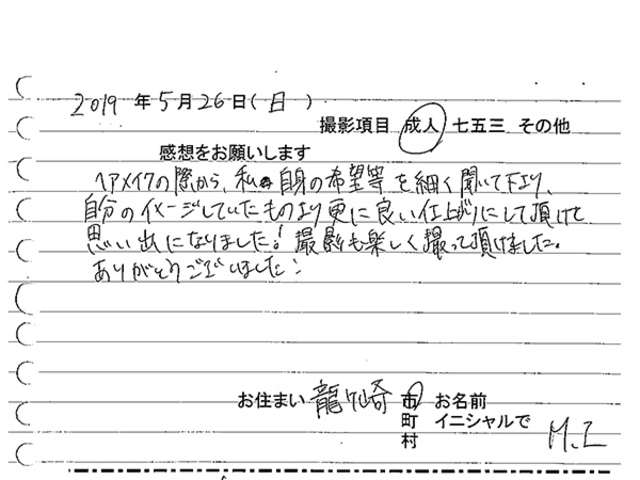 2019 年 5 月 26 日 ( 日 )
撮影項目 成人 七五三 その他
感想をお願いします
ヘアメイクの際から、私自身の希望等を細く聞いて下さり、
自分のイメージしていたものより更に良い仕上がりにして頂けて
思い出になりました! 撮影も楽しく撮って頂けました。
ありがとうございました!
お住まい 龍ヶ崎 市 お名前
町 イニシャルで M.I
村